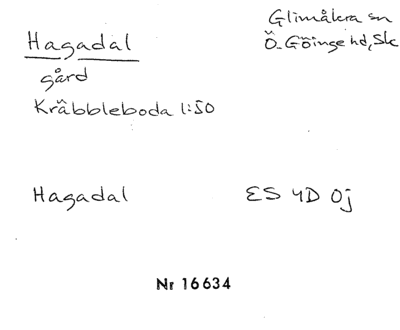 Hagadal
Glimåkra sn
Ö. Göinge hd, Sk
gård
Kråbbleboda 1:50
Hagadal
ES 4D 0j
Nr 16634